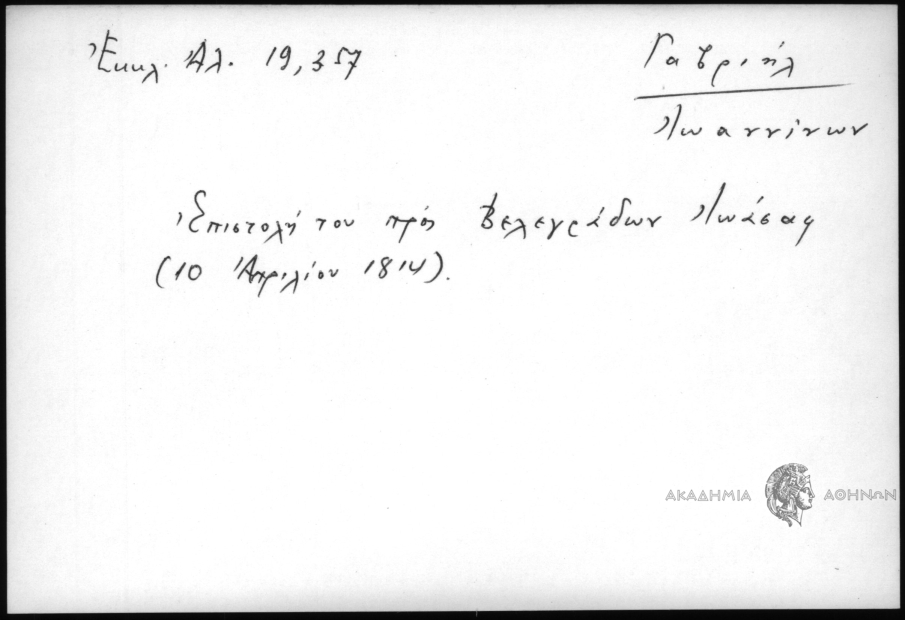 Ἐκκλ. Ἀλ. 19, 357
Γαβριήλ
Ἰωαννίνων
Ἐπιστολή του πρός Βελεγράδων Ἰωάσαφ
(10 Ἀπριλίου 1814).
ΑΚΑΔΗΜΙΑ ΑΘΗΝΩΝ